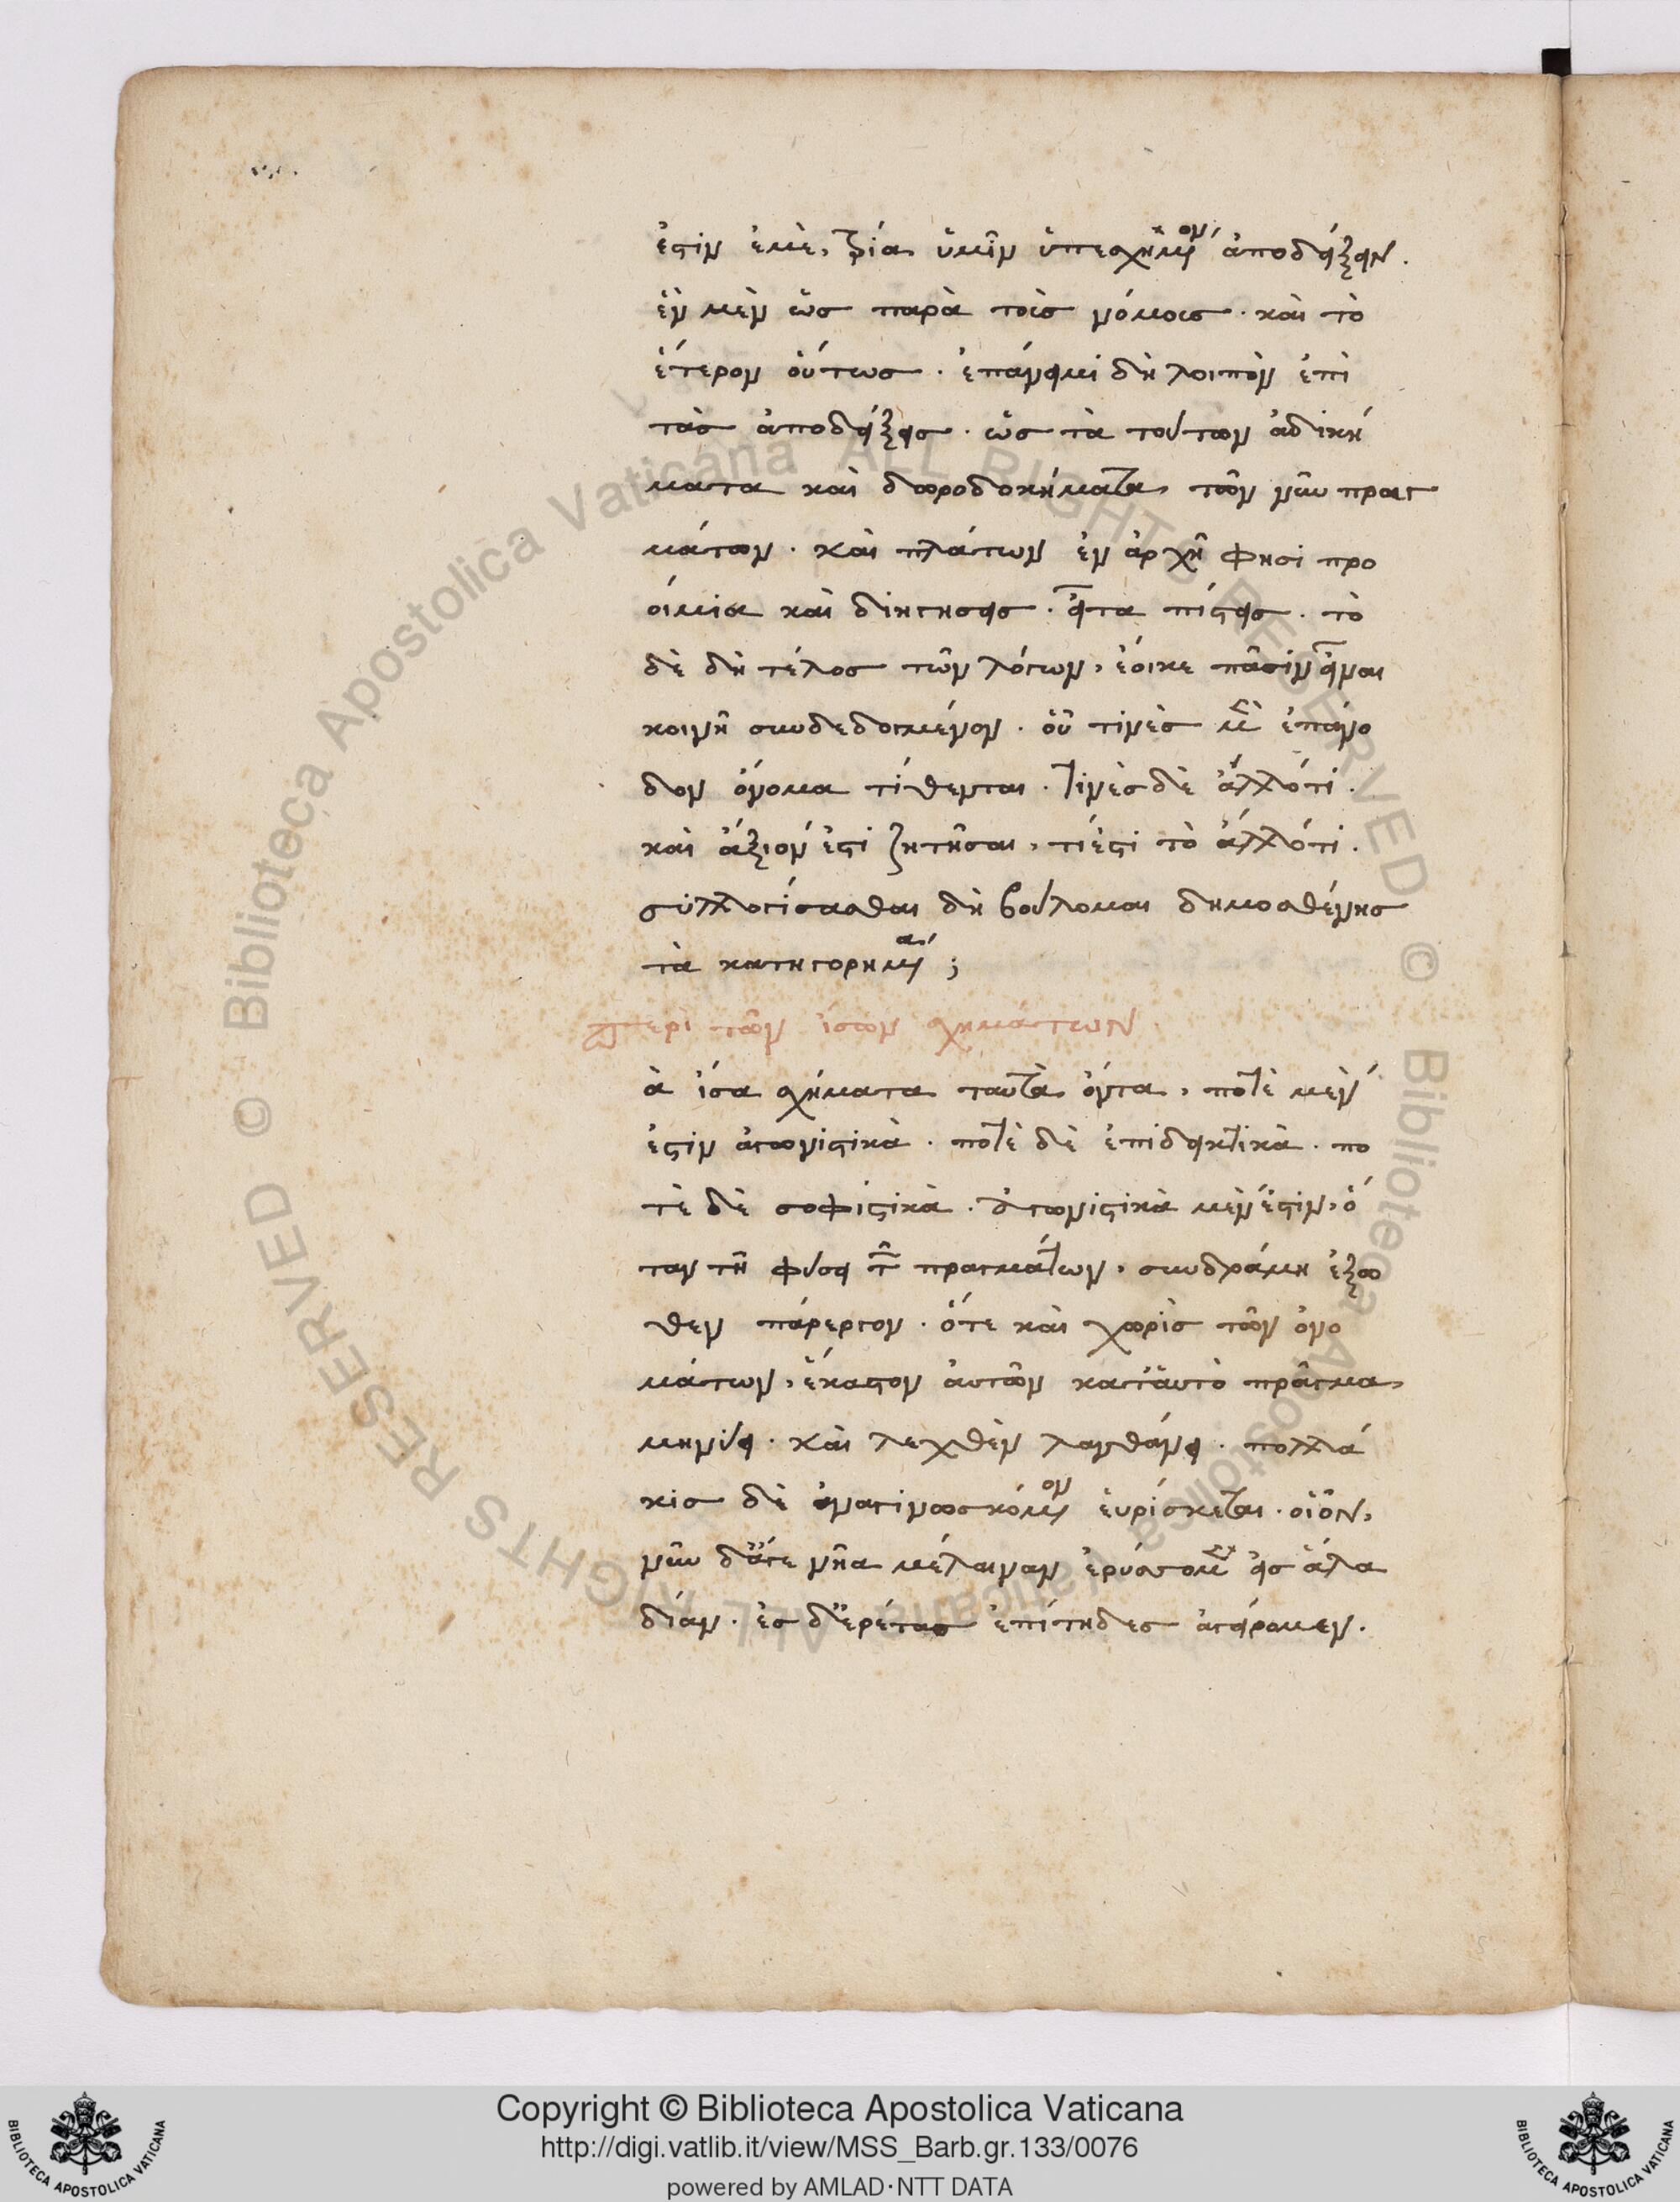 ἐστὶν ἐμὲ, τρία ὑμῖν ὑπεσχημένον ἀποδείξειν.
ἓν μὲν ὡς παρὰ τοὺς νόμους· καὶ τὸ
ἕτερον οὕτως· ἐπάνειμι δὴ λοιπὸν ἐπὶ
τὰς ἀποδείξεις· ὡς τὰ τούτων ἀδική
ματα καὶ δωροδοκήματα, τῶν νῦν πραγ
μάτων· καὶ πλάτων ἐν ἀρχῇ φησι προ
οίμια καὶ διήγησεις· εἶτα πίστεις· τὸ
δὲ δὴ τέλος τῶν λόγων, ἔοικε πᾶσιν εἶναι
κοινῇ συνδεδογμένον· οὗ τινὲς μὲν ἐπάνο
δον ὄνομα τίθενται· τινὲς δὲ ἄλλό τι·
καὶ ἄξιόν ἐστι ζητῆσαι, τί ἐστι τὸ ἄλλό τι.
συλλογίσασθαι δὴ βούλομαι δημοσθένης
τὰ κατηγορημένα;
περὶ τῶν ἴσων σχημάτων
ὰ ἴσα σχήματα ταῦτὰ ὄντα, ποτὲ μὲν
ἐστὶν ἀγωνιστικὰ· ποτὲ δὲ ἐπιδεικτικὰ· πο
τὲ δὲ σοφιστικὰ· ἀγωνιστικὰ μὲν ἐστιν, ὅ
ταν τῇ φύσει τῶν πραγμάτων, συνδράμη ἔξω
θεν πάρεργον· ὅτε καὶ χωρὶς τῶν ὀνο
μάτων, ἕκαστον αὐτῶν κατ' αὐτὸ πρᾶγμα,
μηνύει· καὶ λεχθὲν λανθάνει· πολλά
κις δὲ ἀναγινωσκόμενον εὑρίσκεται· οἷον,
νῦν δ' ἄγε νῆα μέλαιναν ἐρύσσομεν εἰς ἅλα
δίαν· ἐς δ' ἐρέτας ἐπίτηδες ἀγείρομεν.
Copyright © Biblioteca Apostolica Vaticana
http://digi.vatlib.it/view/MSS_Barb.gr.133/0076
powered by AMLAD·NTT DATA